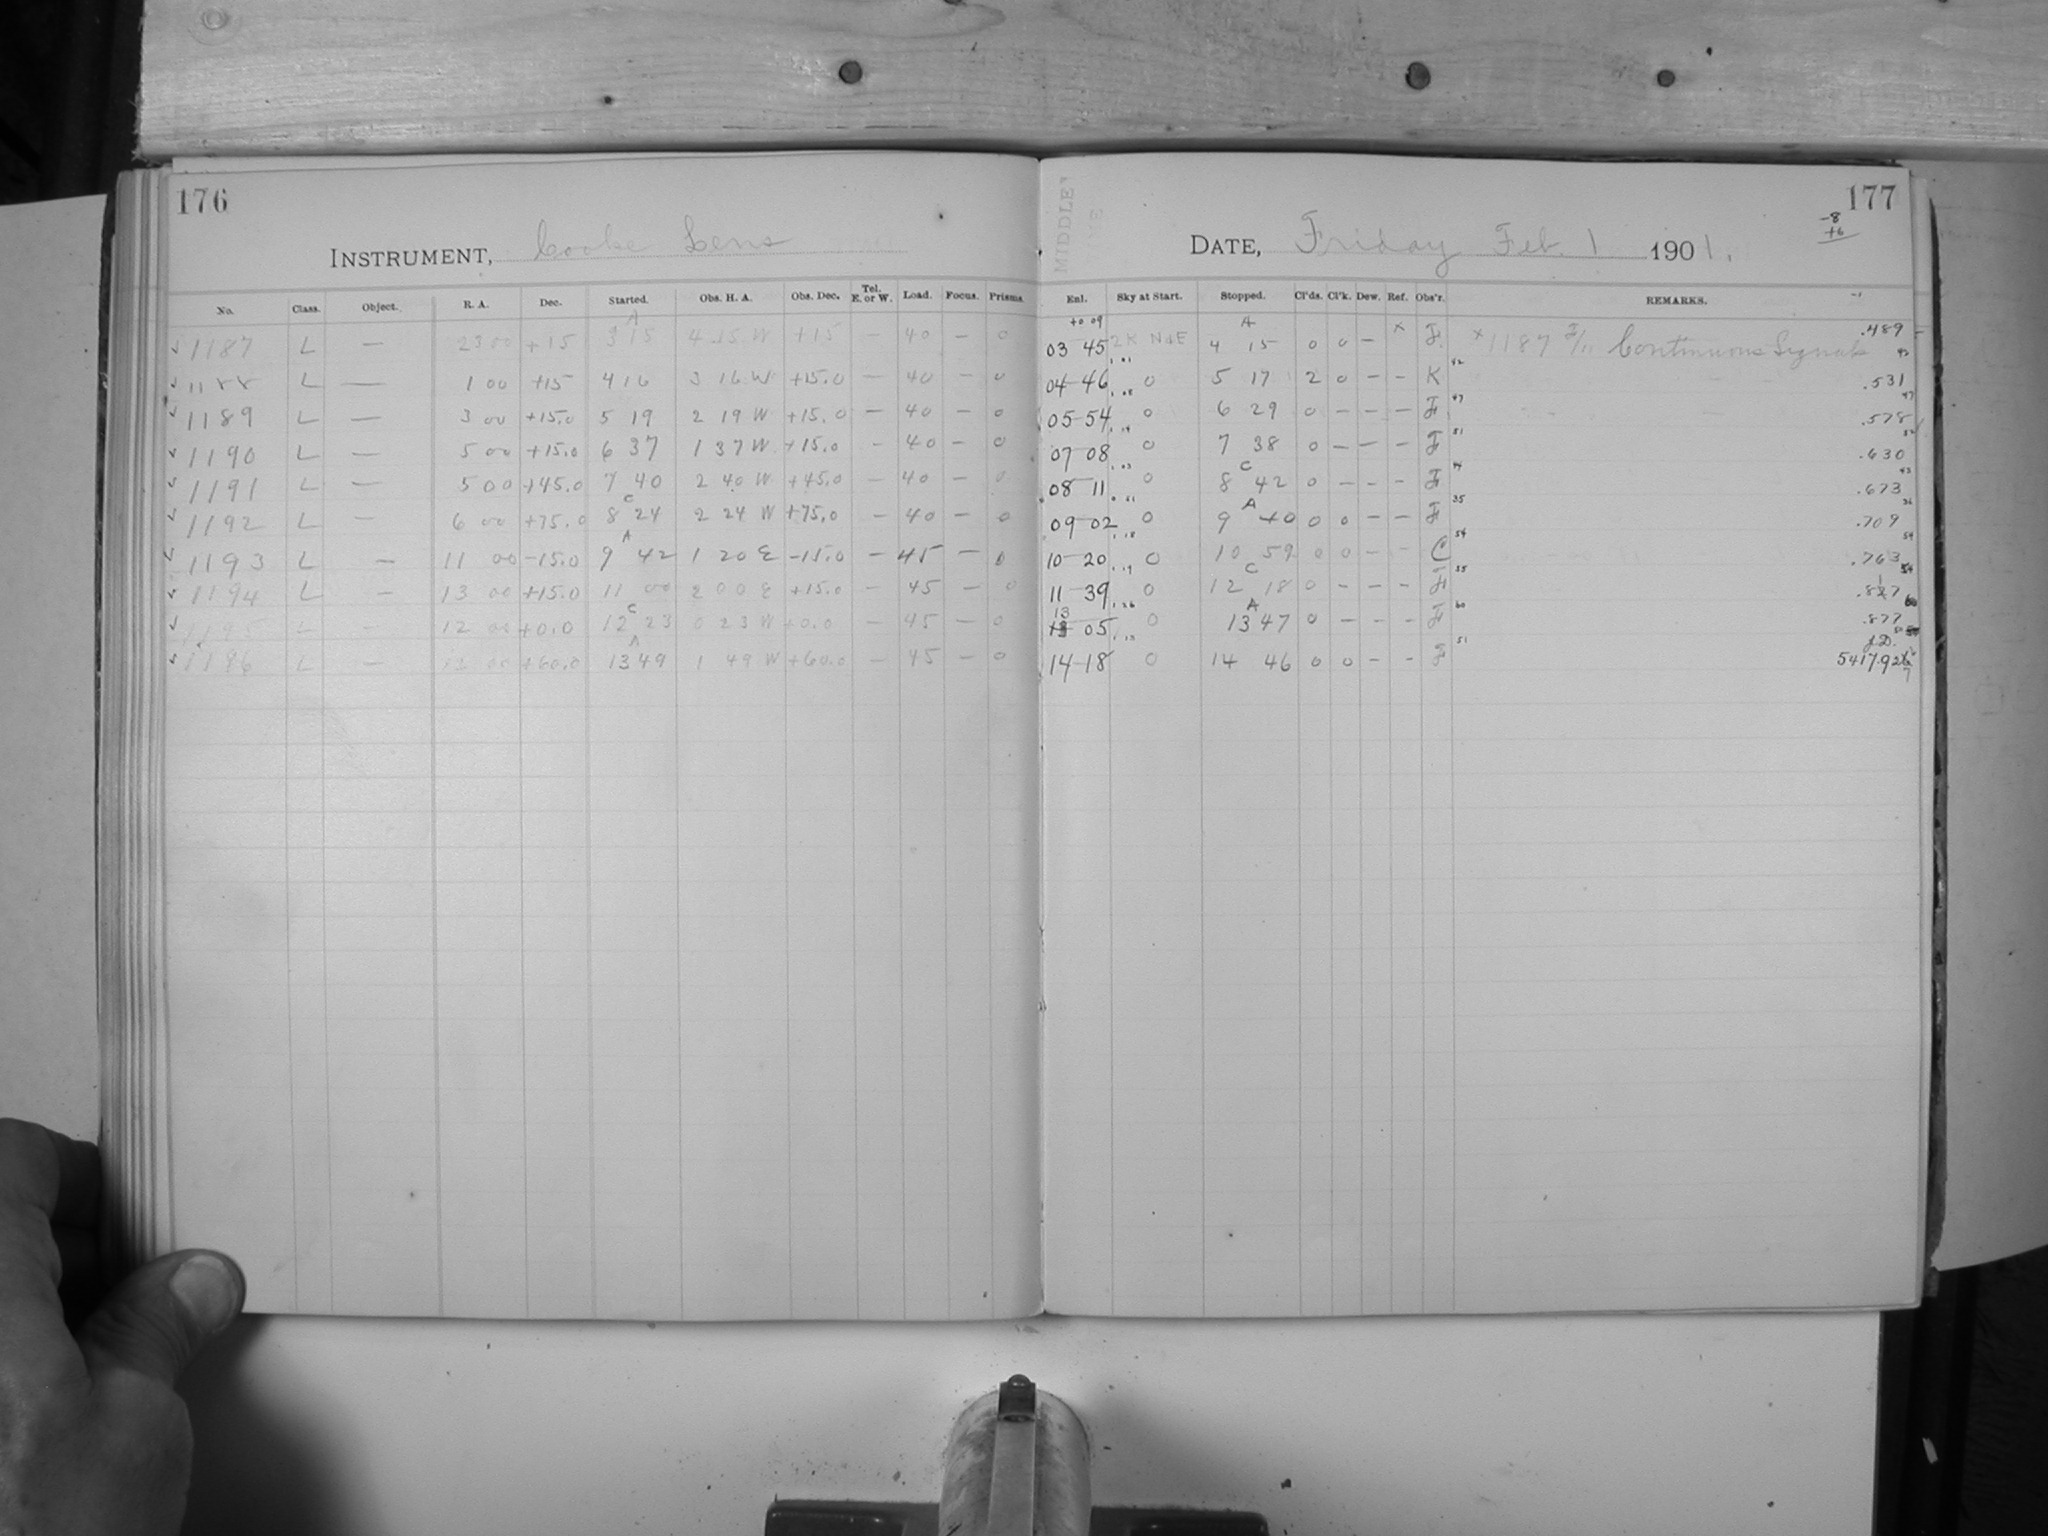 176
INSTRUMENT, Cooke Lens
No. Class. Object. R. A. Dec. Started. Obs. H. A. Obs. Dec. Tel. E. or W. Load. Focus. Prisms.
√ 1187 L — 23 00 +15 3 A 15 4 15 W +15 — 40 — 0
√ 1188 L — 1 00 +15 4 16 3 16 W +15.0 — 40 — 0
√ 1189 L — 3 00 +15.0 5 19 2 19 W +15.0 — 40 — 0
√ 1190 L — 5 00 +15.0 6 37 1 37 W +15.0 - 40 — 0
√ 1191 L — 5 00 +45.0 7 40 2 40 W +45.0 — 40 — 0
√ 1192 L — 6 00 +75.0 8 C 24 2 24 W +75.0 — 40 — 0
√ 1193 L — 11 00 -15.0 9 A 42 1 20 E -15.0 — 45 — 0
√ 1194 L — 13 00 +15.0 11 00 2 00 E +15.0 — 45 — 0
√ 1195 L — 12 00 +0.0 12 C 23 0 23 W +0.0 — 45 — 0
√ 1196 L — 12 00 +60.0 13 A 49 1 49 W +60.0 — 45 — 0
177
-8
+6
MIDDLE
DATE, Friday Feb. 1 1901.
Enl. Sky at Start. Stopped. Cl'ds. Cl'k. Dew. Ref. Obs'r. REMARKS.
+0 09
03 45 2K N&E 4 A 15 0 0 — x F. x 1187 F/11 Continuous Signals .489
04-46 0 5 17 2 0 - - K 42 .531
05-54 0 6 29 0 - - - F 47 .578
07-08 0 7 38 0 — — — F 51 .630
08 11 0 8 C 42 0 - - - F 44 .673
09-02 0 9 A 40 0 0 - - F 35 .709
10-20 0 10 59 0 0 - - C 54 .763
11-39 0 12 C 18 0 - - - F 55
13 05 0 13 A 47 0 - - - F 60 .877
14-18 0 14 46 0 0 - - F 51 J.D.